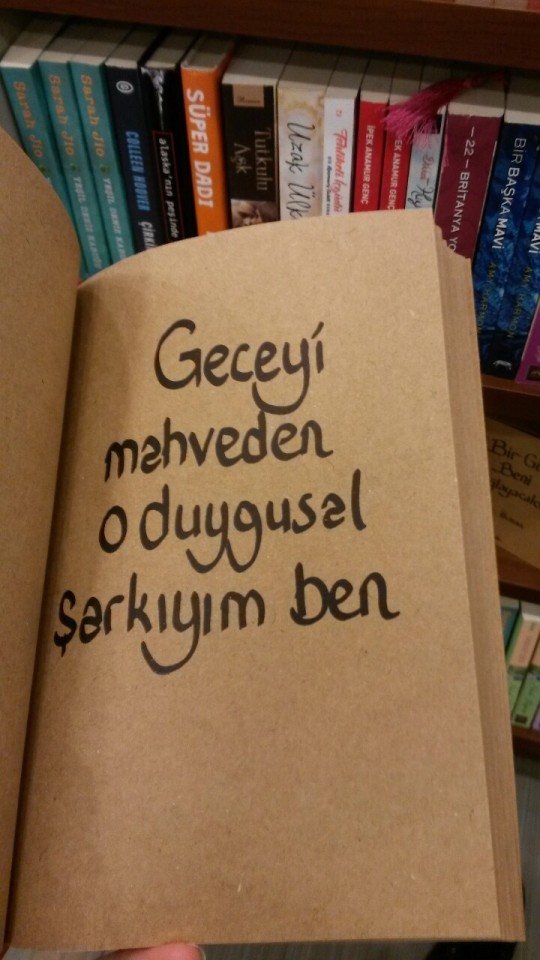 Sarah Jio
Sarah Jio
Sarah Jio
COLLEEN HOOVER
alaska'nın peşinde
SÜPER DADI
Tutkulu
Aşk
Uzak
İPEK ANAMUR GENÇ
İPEK ANAMUR GENÇ
—22— BRİTANYA YO
BİR BAŞKA MAVİ
Geceyi
mahveden
o duygusal
şarkıyım ben
Bir G
Beni